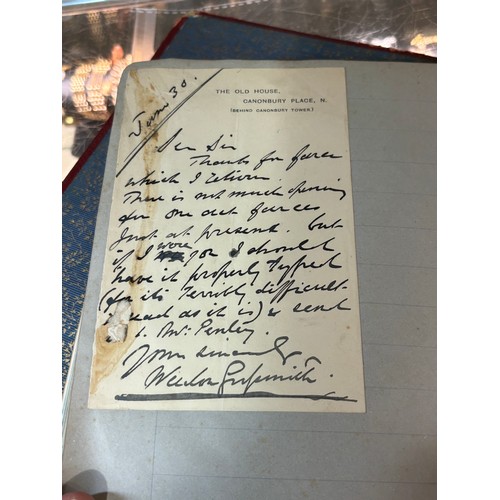 THE OLD HOUSE,
CANONBURY PLACE, N.
(BEHIND CANONBURY TOWER.)
June 30.
Dear Sir
Thanks for farce
which I return.
There is not much opening
for one act farces
just at present. but
if I were you I should
have it properly typed
(for its terribly difficult
to read as it is) & sent
to Mr. Penley.
Yours sincerely
Weedon Grossmith.